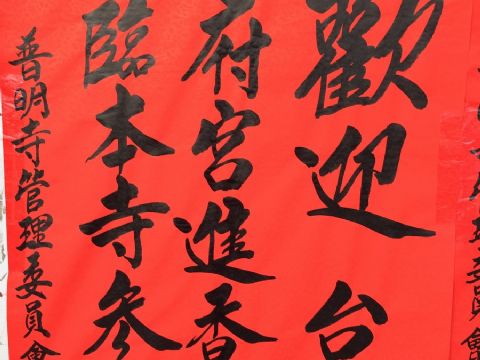 歡迎台
府宮進香
臨本寺參
普明寺管理委員會
理委員會